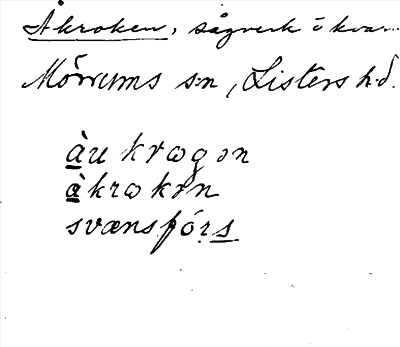 Åkroken, sågverk o kvarn
Mörrums sn, Listers hd.
àu krɷgən
àkrɷkən
svænsfórs